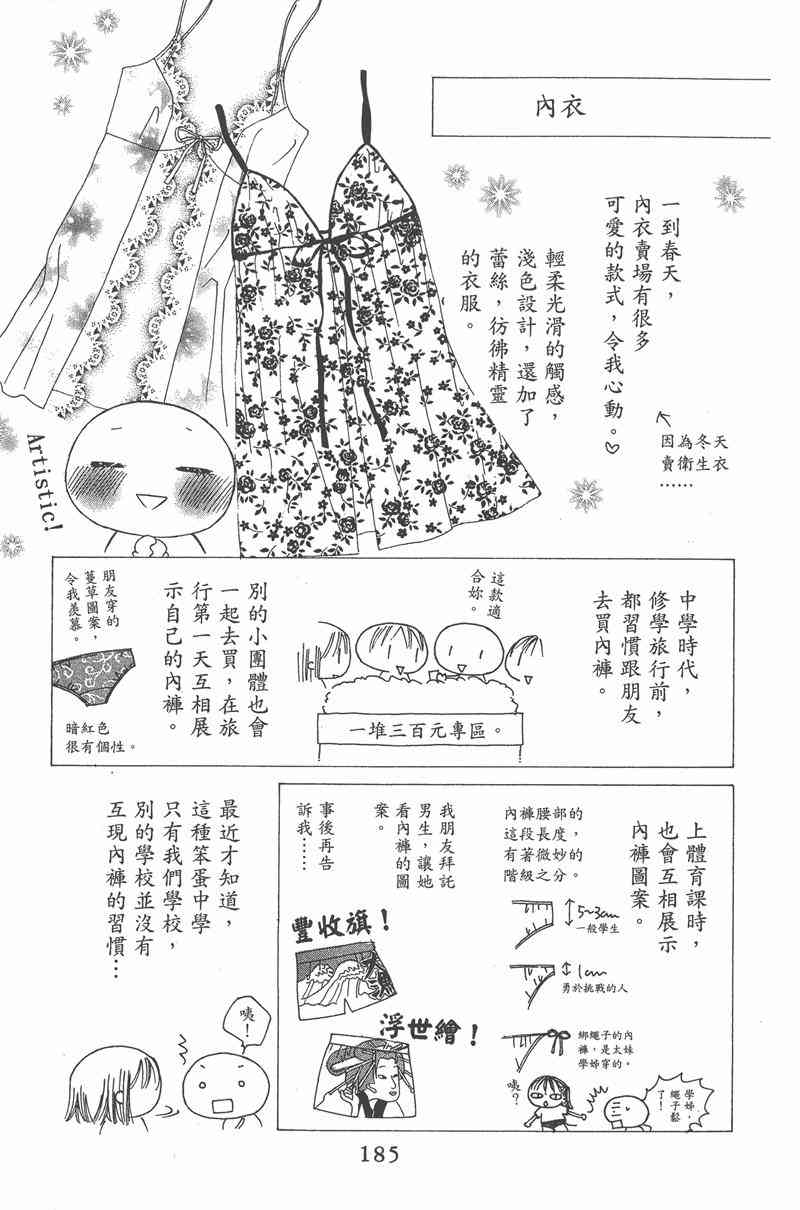 內衣
一到春天，
內衣賣場有很多
可愛的款式，令我心動。♡
因為冬天
賣衛生衣
……
輕柔光滑的觸感，
淺色設計，還加了
蕾絲，彷彿精靈
的衣服。
Artistic!
中學時代，
修學旅行前，
都習慣跟朋友
去買內褲。
這款適
合妳。
一堆三百元專區。
別的小團體也會
一起去買，在旅
行第一天互相展
示自己的內褲。
朋友穿的
蔓草圖案，
令我羨慕。
暗紅色
很有個性。
上體育課時，
也會互相展示
內褲圖案。
內褲腰部的，
這段長度
有著微妙的
階級之分。
5~3cm
一般學生
1cm
勇於挑戰的人
綁繩子的內
褲，是太妹
學姊穿的。
咦？
學姊，
繩子鬆
了！
我朋友拜託
男生，讓她
看內褲的圖
案。
事後再告
訴我……
豐收旗！
浮世繪！
最近才知道，
這種笨蛋中學
只有我們學校，
別的學校並沒有
互現內褲的習慣…
咦！
185